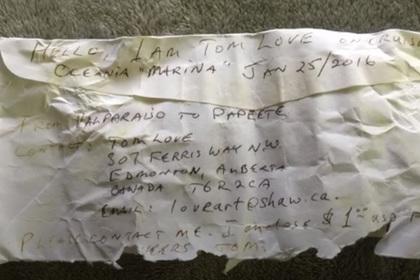 HELLO, I AM TOM LOVE ON CRUISE
OCEANIA "MARINA" JAN 25/2016
FROM VALPARAISO TO PAPEETE
CONTACT: TOM LOVE
307 FERRIS WAY N.W.
EDMONTON, ALBERTA
CANADA T6R2CA
EMAIL: loveart@shaw.ca.
PLEASE CONTACT ME. I enclose $1.00
TOM.